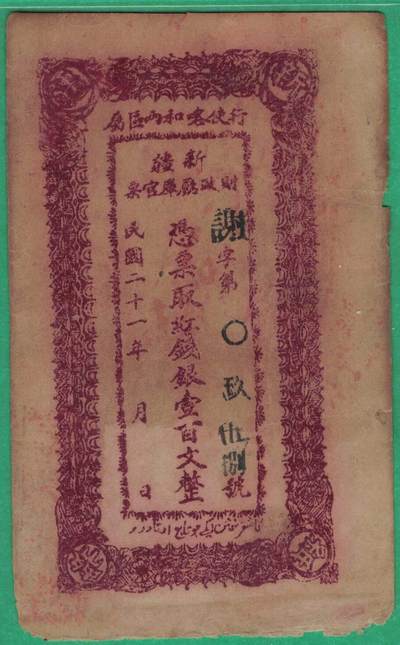 行使喀和兩區屬
新疆
財政廳庫官票
謝字第〇玖伍捌號
憑票取紅錢銀壹百文整
民國二十一年 月 日